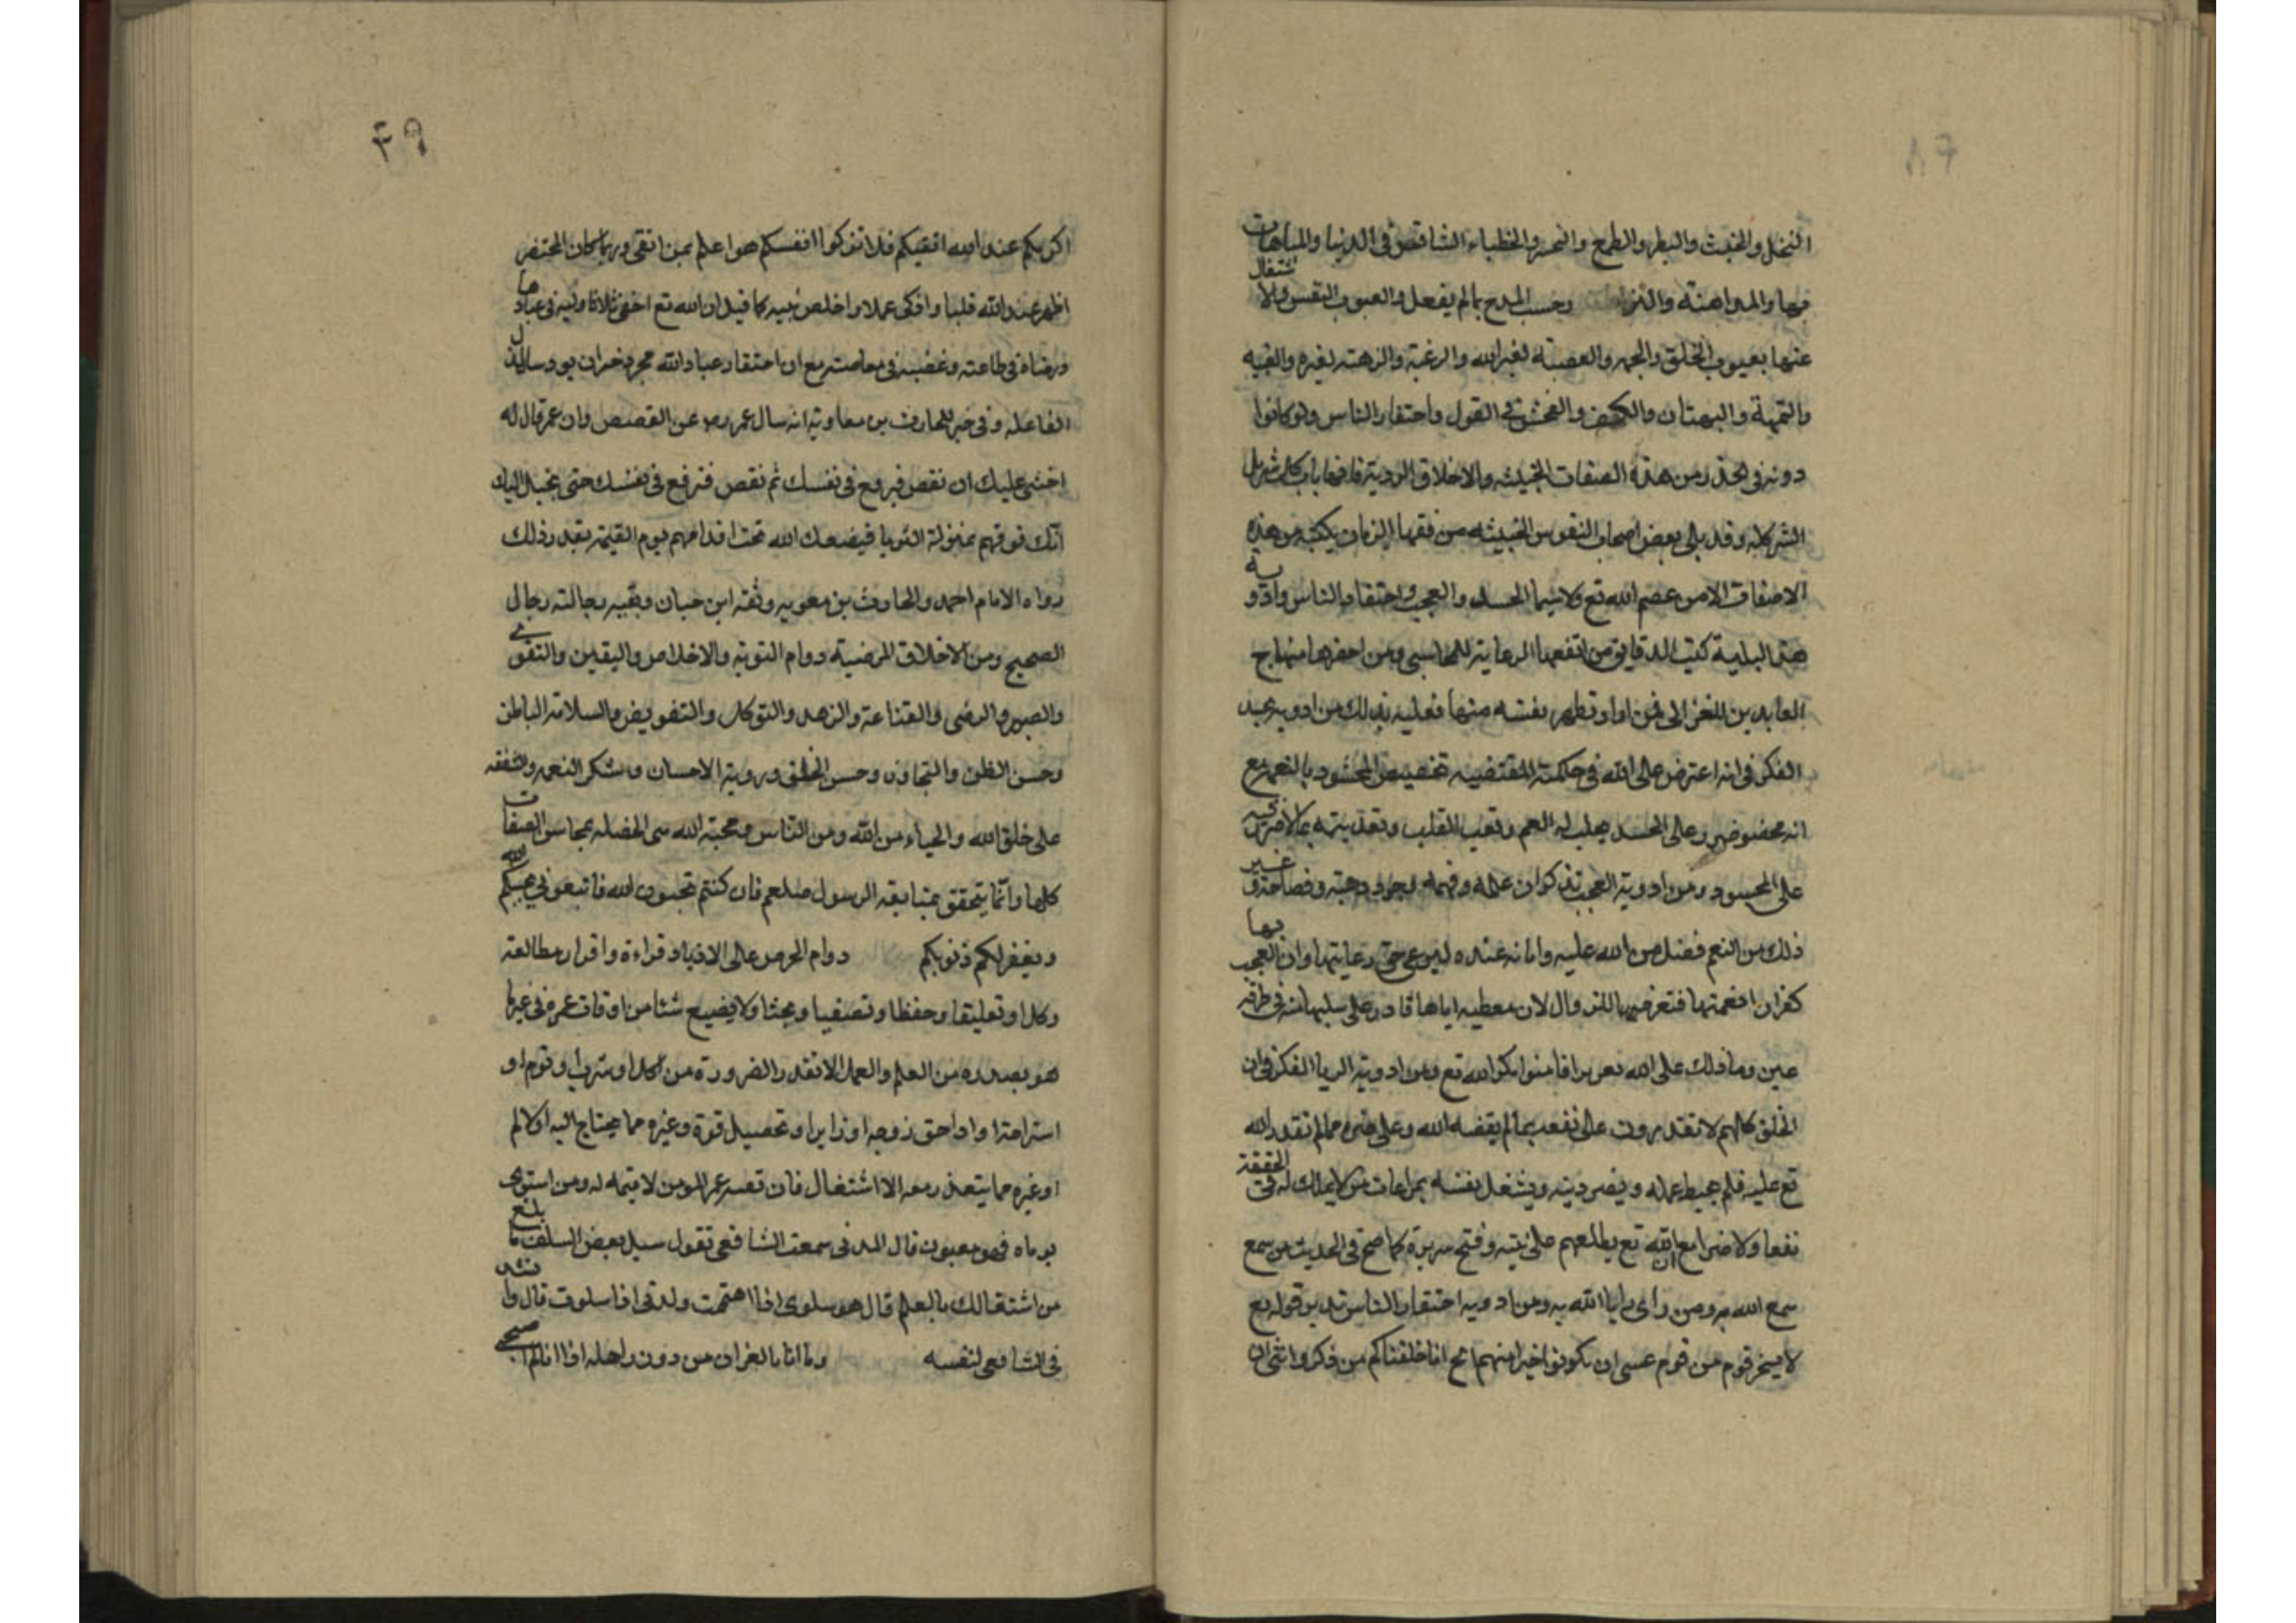 البخل والخبث والبطر والطمع والفخر والخيلاء التنافس في الدنيا والمباهات
فيها والمداهنة والتزين وحب المدح بما لم يفعل والعيوب النفس ولا اشتغال
عنها بعيوب الخلق والحمية والعصبية لغير الله والرغبة والرهبة لغيره والغيبة
والنميمة والبهتان والكذب والفحش في القول واحتقار الناس ولو كانوا
دونه فالحذر من هذه الصفات الخبيثة والاخلاق الردية فانها باب كل شر بل
الشر كله وقد بلي بعض اصحاب النفوس الخبيثة من فقهاء الزمان بكثير من هذه
الاصفات الا من عصم الله تع ولا سيما الحسد والعجب واحتقار الناس وادوية
هذه البلية كتب الدقايق من انفعها الرعاية للمحاسبي ومن احضرها منهاج
العابدين للغزالي فمن اراد تطهر نفسه منها فعليه بذلك من ادوية الحسد
الفكر في انه اعتراض على الله في حكمته المقتضية تخصيص المحسود بالنعمة مع
انه محض ضرر على الحسد يجلب له الغم وتعب القلب وتعذيبه بما لا ضرر فيه
على المحسود ومن ادوية العجب تذكر ان علمه وفهمه وجود ذهنه وفصاحته وغير
ذلك من النعم فضل من الله عليه وامانة عنده ليرعى حق رعايتها وان العجب بها
كفران لنعمتها فتعرضها للزوال لان معطيه اياها قادر على سلبها منه في طرفة
عين وما ذلك على الله بعزيز افامنوا مكر الله تع ومن ادوية الريا الفكر في ان
الخلق كلهم لا يقدرون على نفعه بما لم يقضه الله وعلى ضره مما لم يقدر الله
تع عليه فلم يحبط عمله ويضر دينه ويشغل نفسه بمراعات من لا يملك له في الحقيقة
نفعا ولا ضرا مع ان الله تع يطلعهم على نيته وقبح سريرته كما صح في الحديث من سمع
سمع الله به ومن راى رايا الله به ومن ادوية احتقار الناس تدبر قوله تع
لا يسخر قوم من قوم عسى ان يكونوا خيرا منهم الخ انا خلقناكم من ذكر وانثى ان
٤٩
اكرمكم عند الله اتقيكم فلا تزكوا انفسكم هو اعلم بمن اتقى وربما كان المحتقر
اطهر عند الله قلبا وازكى عملا واخلص نيه كما قيل ان الله تع اخفى ثلاثا وليه في عباده
ورضاه في طاعته وغضبه في معاصيه مع ان احتقار عباد الله مجرد خسران يورد
لفاعله وفي خبر للحارث بن معاوية انه سال عمر رض عن القصص وان عمر قال له
اخشى عليك ان تقص فترفع في نفسك ثم تقص فترفع في نفسك حتى يخيل اليك
انك فوقهم بمنزلة الثريا فيضعك الله تحت اقدامهم يوم القيمة بقدر ذلك
رواه الامام احمد والحارث بن معوية وثقه ابن حبان وبقية رجالته رجال
الصحيح ومن الاخلاق المرضية دوام التوبة والاخلاص واليقين والتقوى
والصبر والرضى والقناعة والزهد والتوكل والتفويض والسلامة الباطن
وحسن الظن والتجاوز وحسن الخلق وروية الاحسان وشكر النعمة والشفقة
على خلق الله والحياء من الله ومن الناس ومحبة الله هي الخصلة بمحاسن الصفات
كلها وانما يتحقق بمتابعة الرسول صلعم فان كنتم تحبون الله فاتبعوني يحببكم الله
ويغفر لكم ذنوبكم دوام الحرص على الازدياد قراءة واقرار مطالعة
وكل او تعليقا وحفظا وتصنيفا وبحثا ولا يضيع شئا من اوقات عمره في غير ما
هو بصدده من العلم والعمل الا بقدر الضرورة من اكل او شرب او نوم او
استراحة او اداحق زوجه او زاير او تحصيل قوة وغيره مما يحتاج اليه او لالم
او غيره مما يتعذر معه الا اشتغال فان بقية عمر المومن لا قيمة له ومن استوى
يوماه فهو مغبون قال المزنى سمعت الشافعي تقول سيل بعض السلف ما بلغ
من اشتغالك بالعلم قال هو سلوى اذا اهتممت ولذتى اذا سلوت قال وانشد
في الشافعي لنفسه وما انا بالغيران من دون اهله اذا انا لم